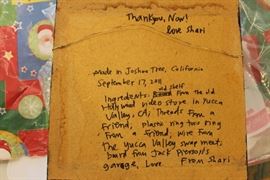 Thankyou, Now!
Love Shari
Made in Joshua Tree, California
September 17, 2011
Ingredients: old shelf From the old
Hollywood video store in Yucca
Valley, CA, Threads From a
Friend, plastic ring two ring
From a Friend, wire From
The Yucca Valley swap meet,
board from Jack Pierson's
garage, Love From Shari